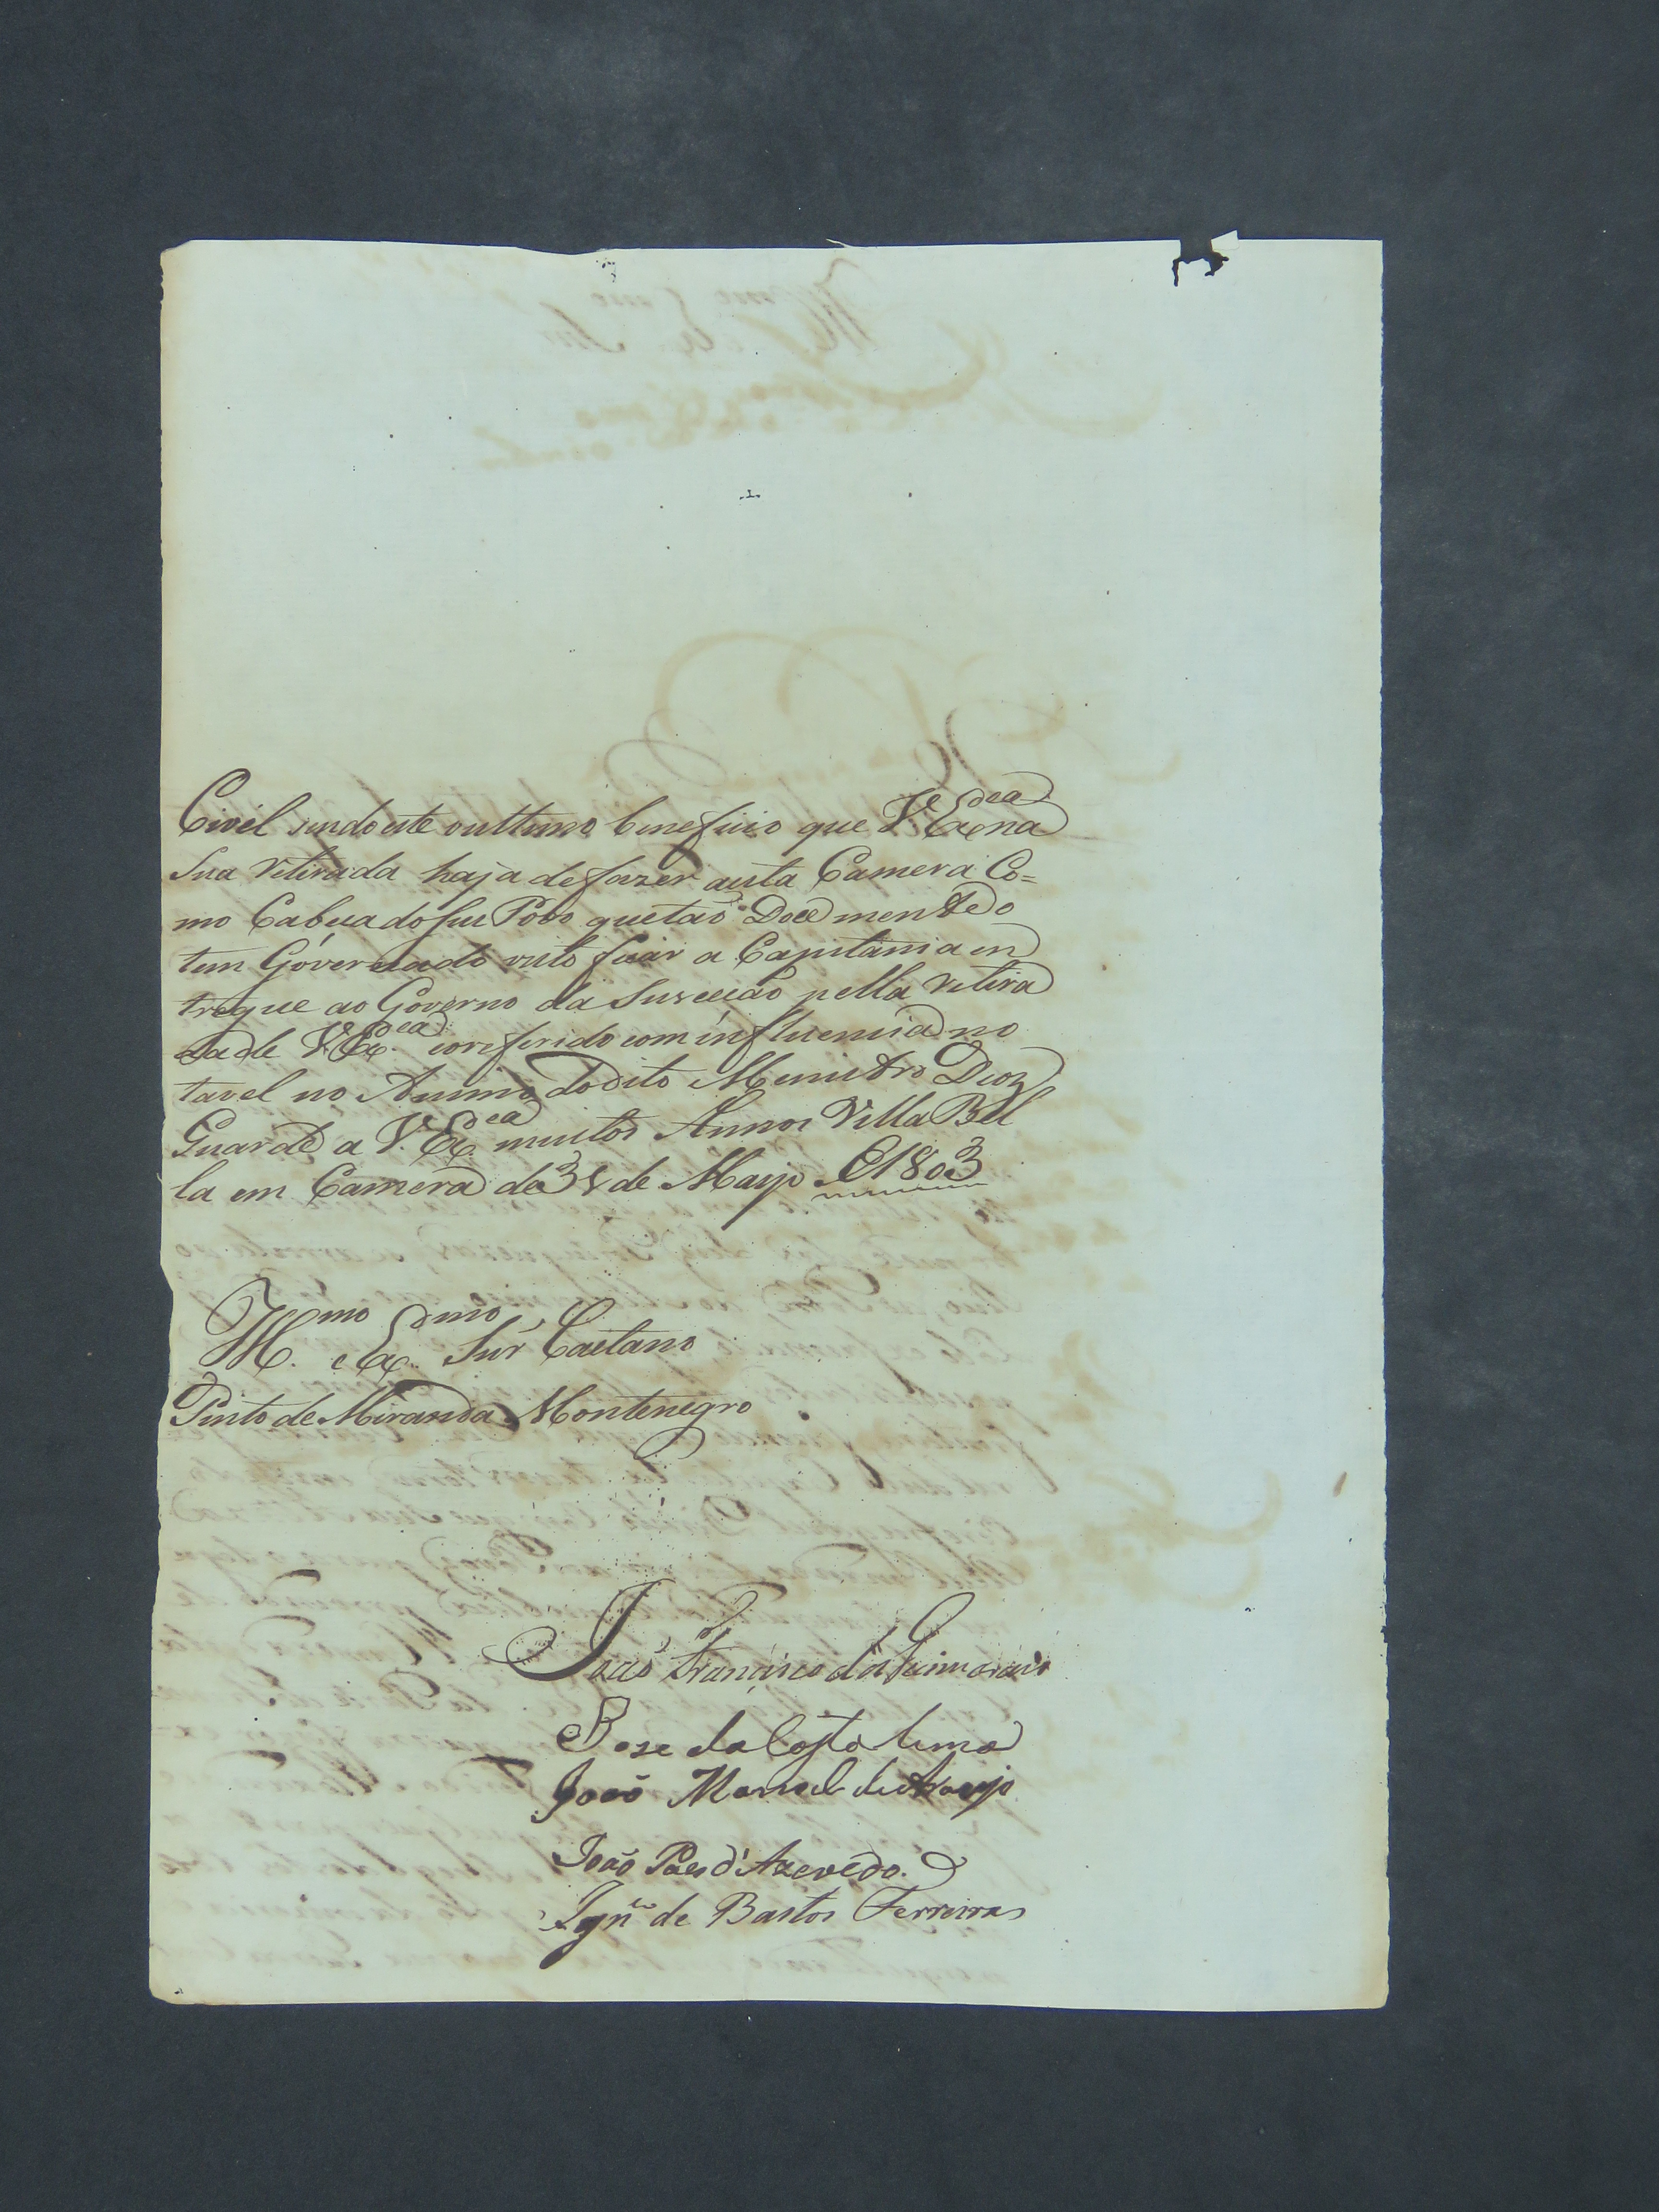 Civel sendo este oulttimo beneficio que V. Exea na
Sua retirada haja de fazer aesta Camera Co=
mo Cabeca do seu Povo que taõ Docemente o
tem Governado visto ficar a Capitania en
tregue ao Governo da Suseccaõ pella retira
da de V. Exea. e o referido com influencia no
tavel no Animo do dito Menistro Deoz
Guarde a V. Exea muitos Annos Villa Bel
la em Camera de 31 de Mayo de 1803
Illmo. e Exmo. Snr Caetano
Pinto de Miranda Montenegro
Joaõ Francisco dos Guimaraes
Jose da Costa Lima
Joaõ Manoel de Araujo
Joaõ Paes d'Azevedo.
Ignco de Bastos Ferreira